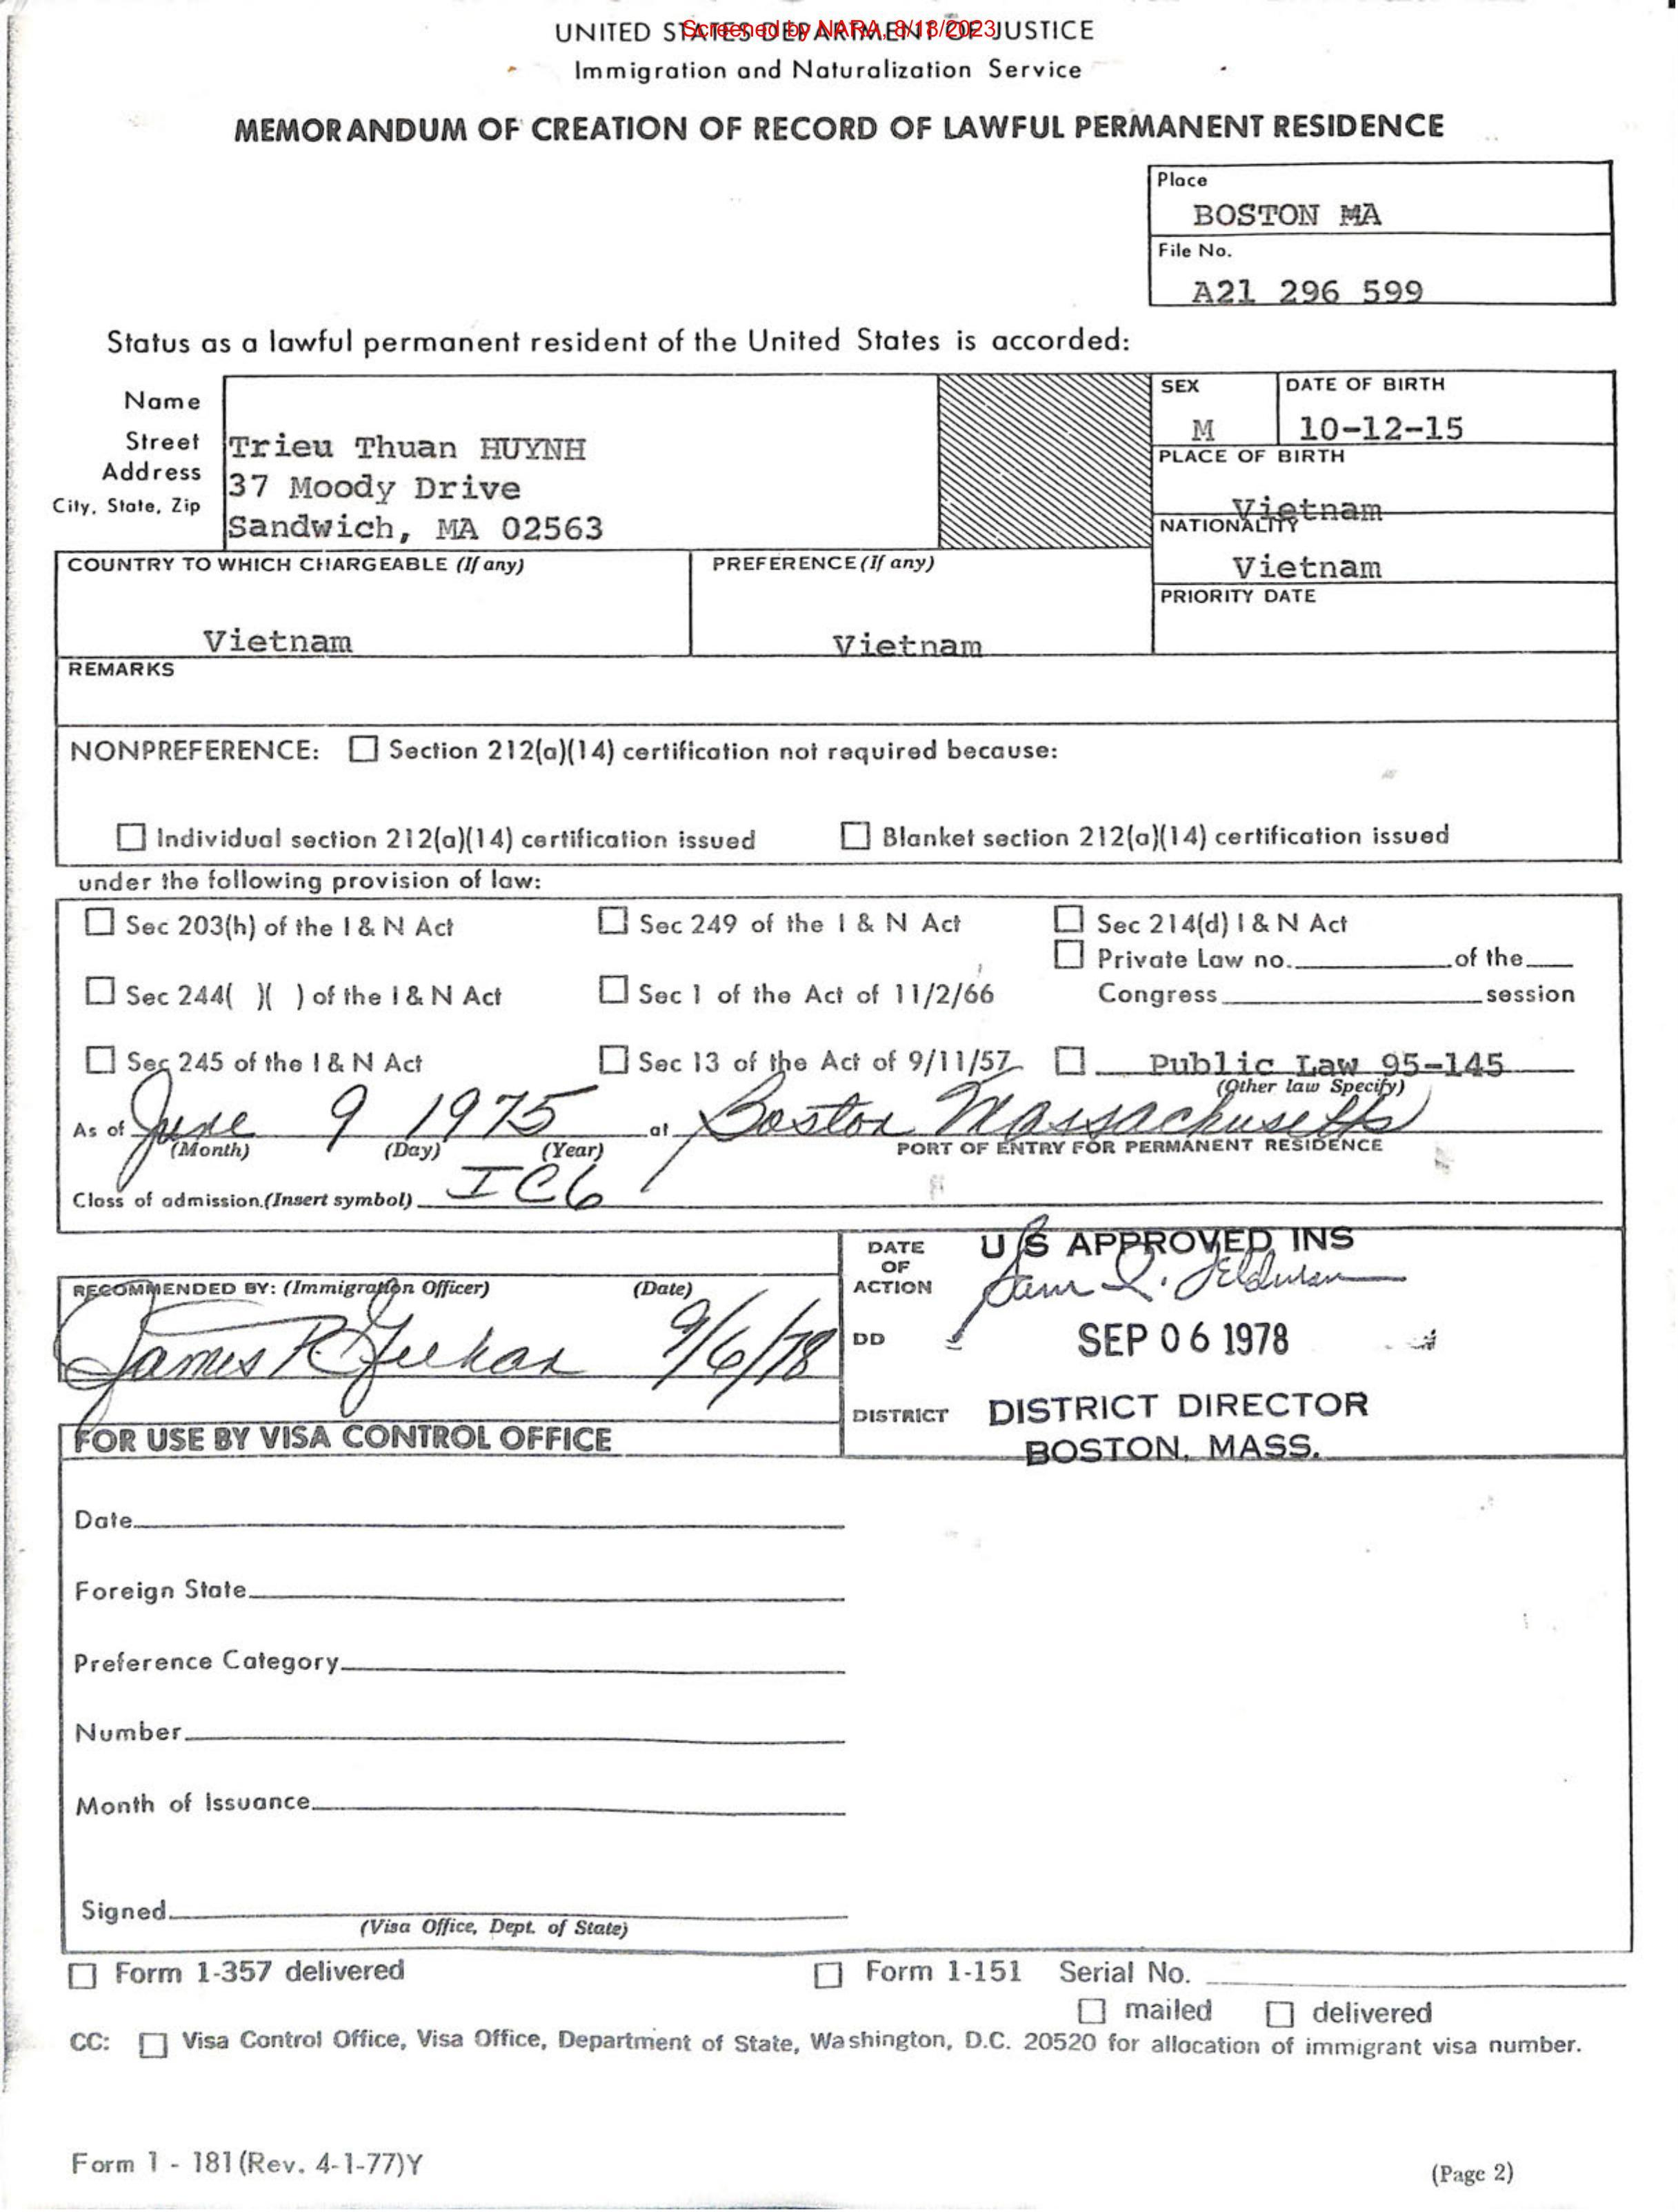 Screened by NARA, 8/18/2023
UNITED STATES DEPARTMENT OF JUSTICE
Immigration and Naturalization Service
MEMORANDUM OF CREATION OF RECORD OF LAWFUL PERMANENT RESIDENCE
Place
BOSTON MA
File No.
A21 296 599
Status as a lawful permanent resident of the United States is accorded:
Name
Street
Address
City, State, Zip
Trieu Thuan HUYNH
37 Moody Drive
Sandwich, MA 02563
SEX
M
DATE OF BIRTH
10-12-15
PLACE OF BIRTH
Vietnam
NATIONALITY
Vietnam
PRIORITY DATE
COUNTRY TO WHICH CHARGEABLE (If any)
Vietnam
PREFERENCE (If any)
Vietnam
REMARKS
NONPREFERENCE: ☐ Section 212(a)(14) certification not required because:
☐ Individual section 212(a)(14) certification issued ☐ Blanket section 212(a)(14) certification issued
under the following provision of law:
☐ Sec 203(h) of the I & N Act ☐ Sec 249 of the I & N Act ☐ Sec 214(d) I & N Act
☐ Private Law no. of the
☐ Sec 244( )( ) of the I & N Act ☐ Sec 1 of the Act of 11/2/66 Congress session
☐ Sec 245 of the I & N Act ☐ Sec 13 of the Act of 9/11/57 ☐ Public Law 95-145
(Other law Specify)
As of June 9 1975 at Boston Massachusetts
(Month) (Day) (Year) PORT OF ENTRY FOR PERMANENT RESIDENCE
Class of admission (Insert symbol) IC6
RECOMMENDED BY: (Immigration Officer) (Date)
James R 9/6/78
DATE
OF
ACTION
DD
DISTRICT
U S APPROVED INS
Sam I. Feldman
SEP 06 1978
DISTRICT DIRECTOR
BOSTON, MASS.
FOR USE BY VISA CONTROL OFFICE
Date
Foreign State
Preference Category
Number
Month of Issuance
Signed
(Visa Office, Dept. of State)
☐ Form 1-357 delivered ☐ Form 1-151 Serial No.
☐ mailed ☐ delivered
CC: ☐ Visa Control Office, Visa Office, Department of State, Washington, D.C. 20520 for allocation of immigrant visa number.
Form 1 - 181 (Rev. 4-1-77)Y
(Page 2)